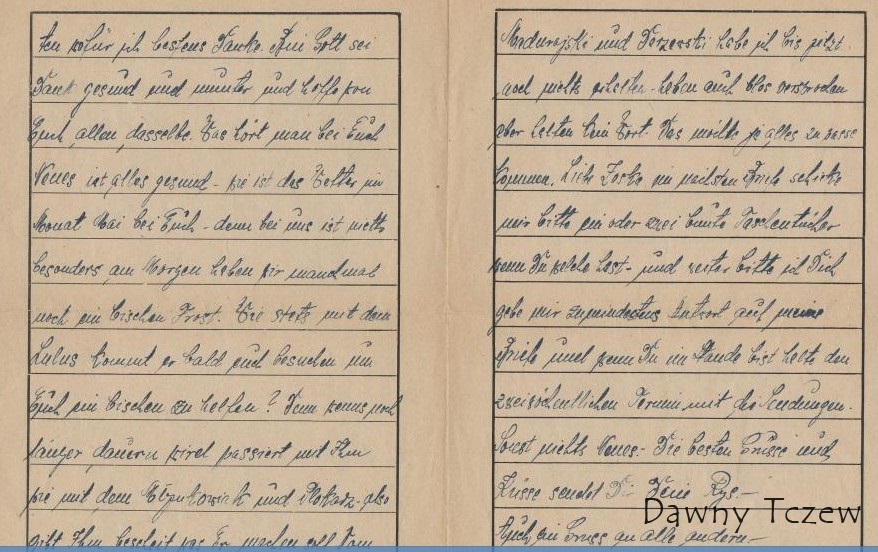 ten wofür ich bestens Danke. Bin Gott sei
Dank gesund und munter und hoffe von
Euch allen dasselbe. Was hört man bei Euch
Neues ist alles gesund - wie ist das Wetter im
Monat Mai bei Euch - denn bei uns ist nichts
besonders am Morgen haben wir manchmal
noch ein bischen Frost. Wie stets mit dem
Lulus kommt er bald euch besuchen um
Euch ein bischen zu helfen? Denn wenns noch
länger dauern wird passiert mit Ihm
wie mit dem und also
gibt Ihm bescheit was Er machen soll Vom
und habe ich bis jetzt
noch nichts erhalten - haben auch blos versprochen
aber halten kein Wort. Das möchte ja alles zu
kommen. Liebe Zoska im nächsten Briefe schicke
mir bitte ein oder zwei bunte Taschentücher
wenn Du welche hast - und weiter bitte ich Dich
gebe mir zumindestens Antwort auf meine
Briefe und wenn Du im Stande bist halte den
zweiwöchentlichen Termin mit die Sendungen.
Sonst nichts Neues. - Die besten Grüsse und
Küsse sendet Dir Dein Rys. -
Auch ein Gruss an alle andern. -
Dawny Tczew